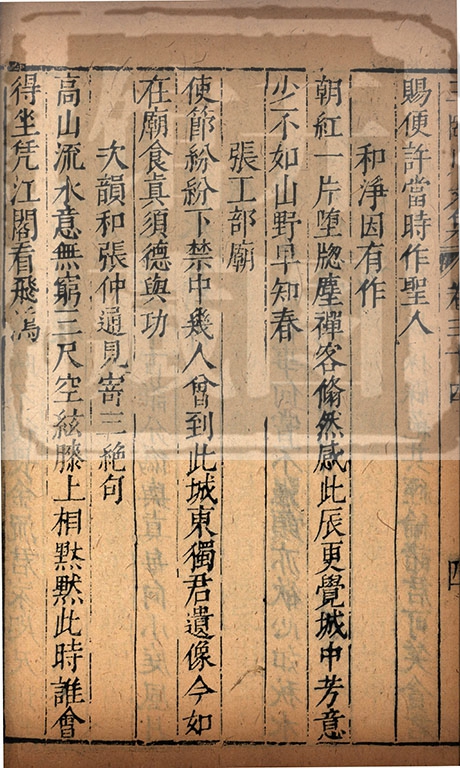 賜便許當時作聖人
和淨因有作
朝紅一片墮牎塵禪客翛然感此辰更覺城中芳意
少不如山野早知春
張工部廟
使節紛紛下禁中幾人曾到此城東獨君遺像今如
在廟食真須德與功
次韻和張仲通見寄三絶句
高山流水意無窮三尺空絃膝上桐黙黙此時誰會
得坐凭江閣看飛鴻